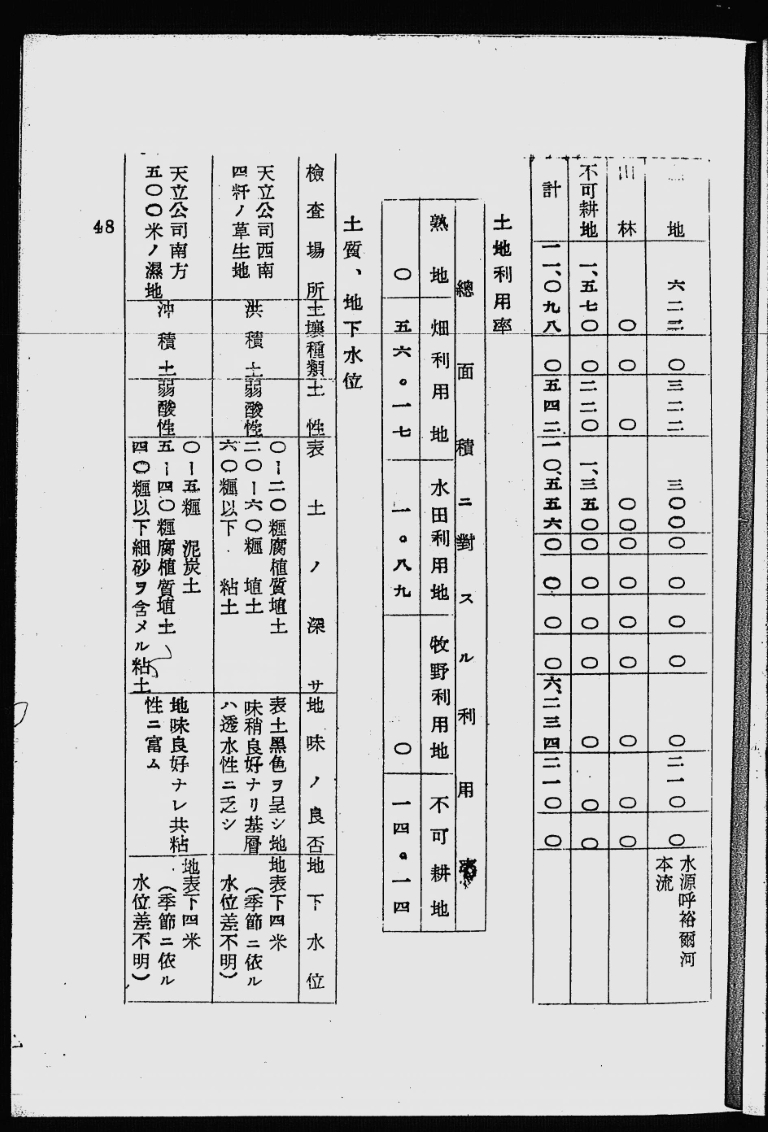 地 六二二 〇 三二二 三〇〇 〇 〇 〇 〇 〇 二一〇 〇 水源呼裕爾河
本流
山林 〇 〇 〇 〇 〇 〇 〇 〇 〇 〇 〇
不可耕地 一、五七〇 〇 二二〇 一、三五〇 〇 〇 〇 〇 〇 〇 〇
計 一一、〇九八 〇 五四二 一〇、五五六 〇 〇 〇 〇 六、二三四 二一〇 〇
土地利用率
總面積ニ對スル利用率
熟地 畑利用地 水田利用地 牧野利用地 不可耕地
〇 五六。一七 一。八九 〇 一四。一四
土質、地下水位
檢査場所 土壤種類 土性 表土ノ深サ 地味ノ良否 地下水位
天立公司西南
四粁ノ草生地
洪積土
弱酸性
〇ー二〇糎腐植質埴土
二〇ー六〇糎 埴土
六〇糎以下 粘土
表土黑色ヲ呈シ地
味稍良好ナリ基層
ハ透水性ニ乏シ
地表下四米
(季節ニ依ル
水位差不明)
天立公司南方
五〇〇米ノ濕地
沖積土
弱酸性
〇ー五糎 泥炭土
五ー四〇糎腐植質埴土
四〇糎以下細砂ヲ含メル粘土
地味良好ナレ共粘
性ニ富ム
地表下四米
(季節ニ依ル
水位差不明)
48